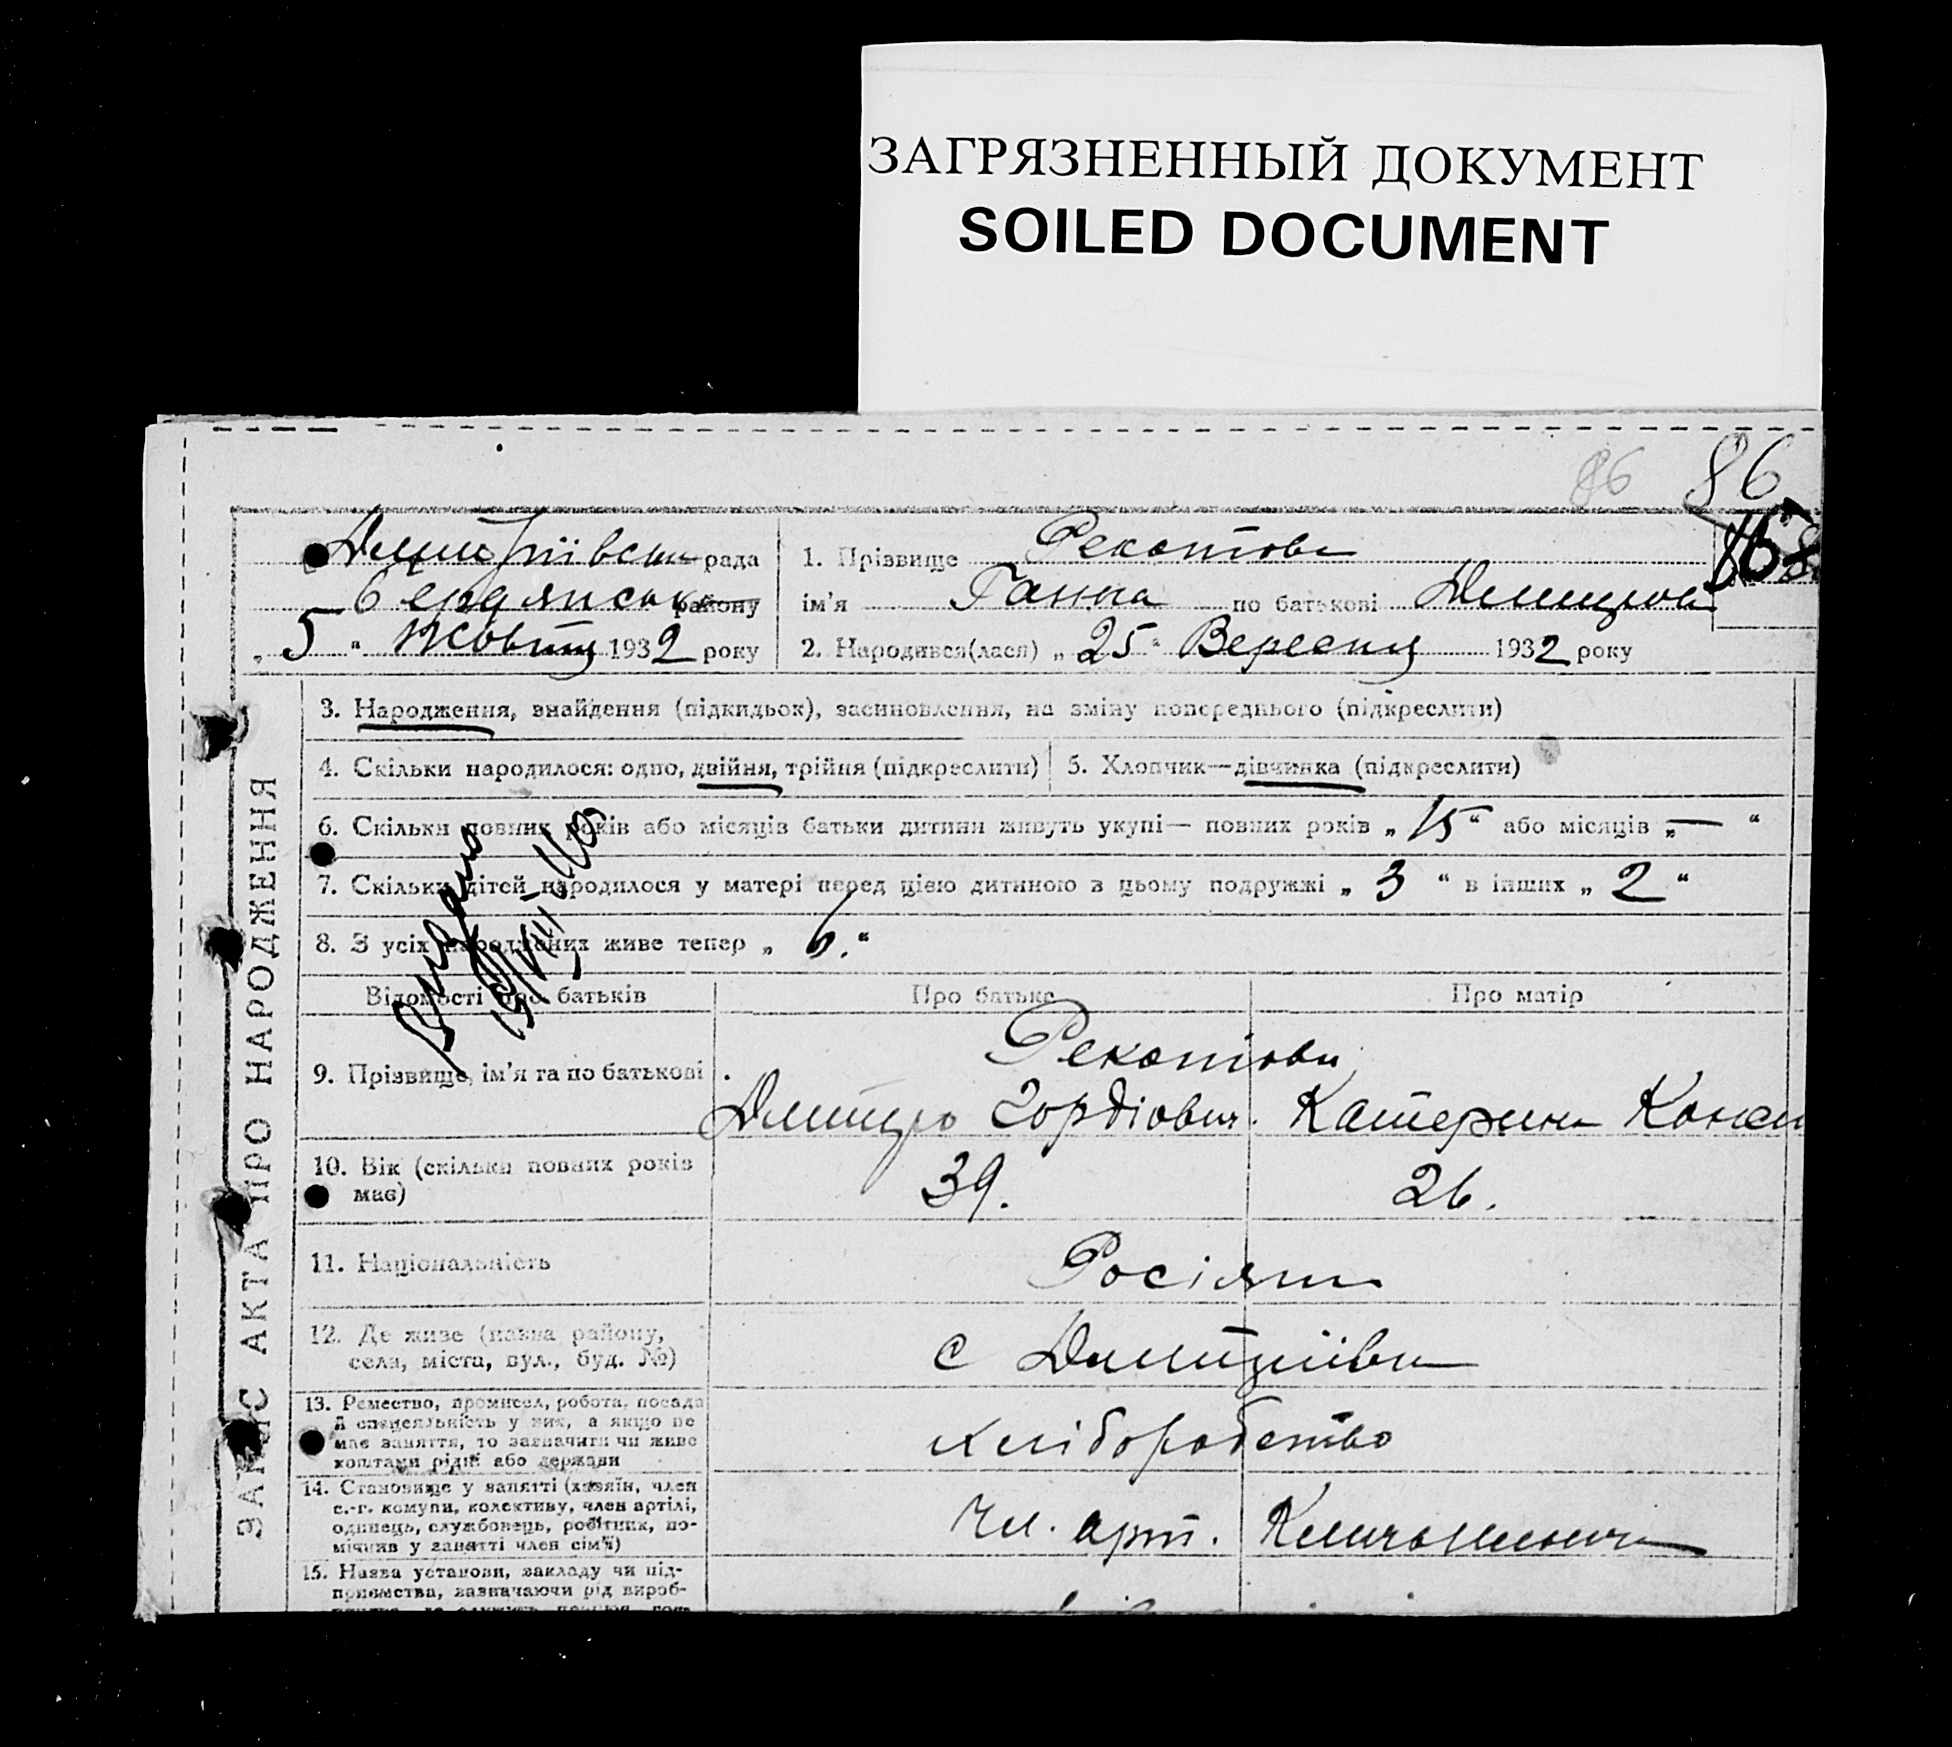 ЗАГРЯЗНЕННЫЙ ДОКУМЕНТ
SOILED DOCUMENT
86 86
Дмитріївська рада
Бердянськ району
„ 5 “ Жовтня 1932 року
1. Прізвище Рекотова
ім'я Ганна по батькові Дмитров
2. Народився(лася) „ 25 “ Вересня 1932 року
ЗАПИС АКТА ПРО НАРОДЖЕННЯ
3. Народження, знайдення (підкидьок), засиновлення, на зміну попереднього (підкреслити)
4. Скільки народилося: одно, двійня, трійня (підкреслити) 5. Хлопчик—дівчинка (підкреслити)
6. Скільки повних років або місяців батьки дитини живуть укупі— повних років „ 15 “ або місяців „ — “
7. Скільки дітей народилося у матері перед цією дитиною в цьому подружжі „ 3 “ в інших „ 2 “
8. З усіх народжених живе тепер „ 6. “
Видано
Відомості про батьків Про батька Про матір
9. Прізвище, ім'я та по батькові
Рекотови
Дмитро Гордіович. Катерина
10. Вік (скільки повних років має) 39. 26.
11. Національність Росіяни
12. Де живе (назва району, села, міста, вул., буд. №) с Дмитріївка
13. Ремество, промисел, робота, посада й спеціяльність у них, а якщо не має заняття, то зазначити чи живе коштами рідні або держави
хліборобство
14. Становище у занятті (хазяїн, член с.-г. комуни, колективу, член артілі, одинець, службовець, робітник, помічник у занятті член сім'ї)
Чл. арт.
15. Назва установи, закладу чи підприємства, зазначаючи рід вироб-